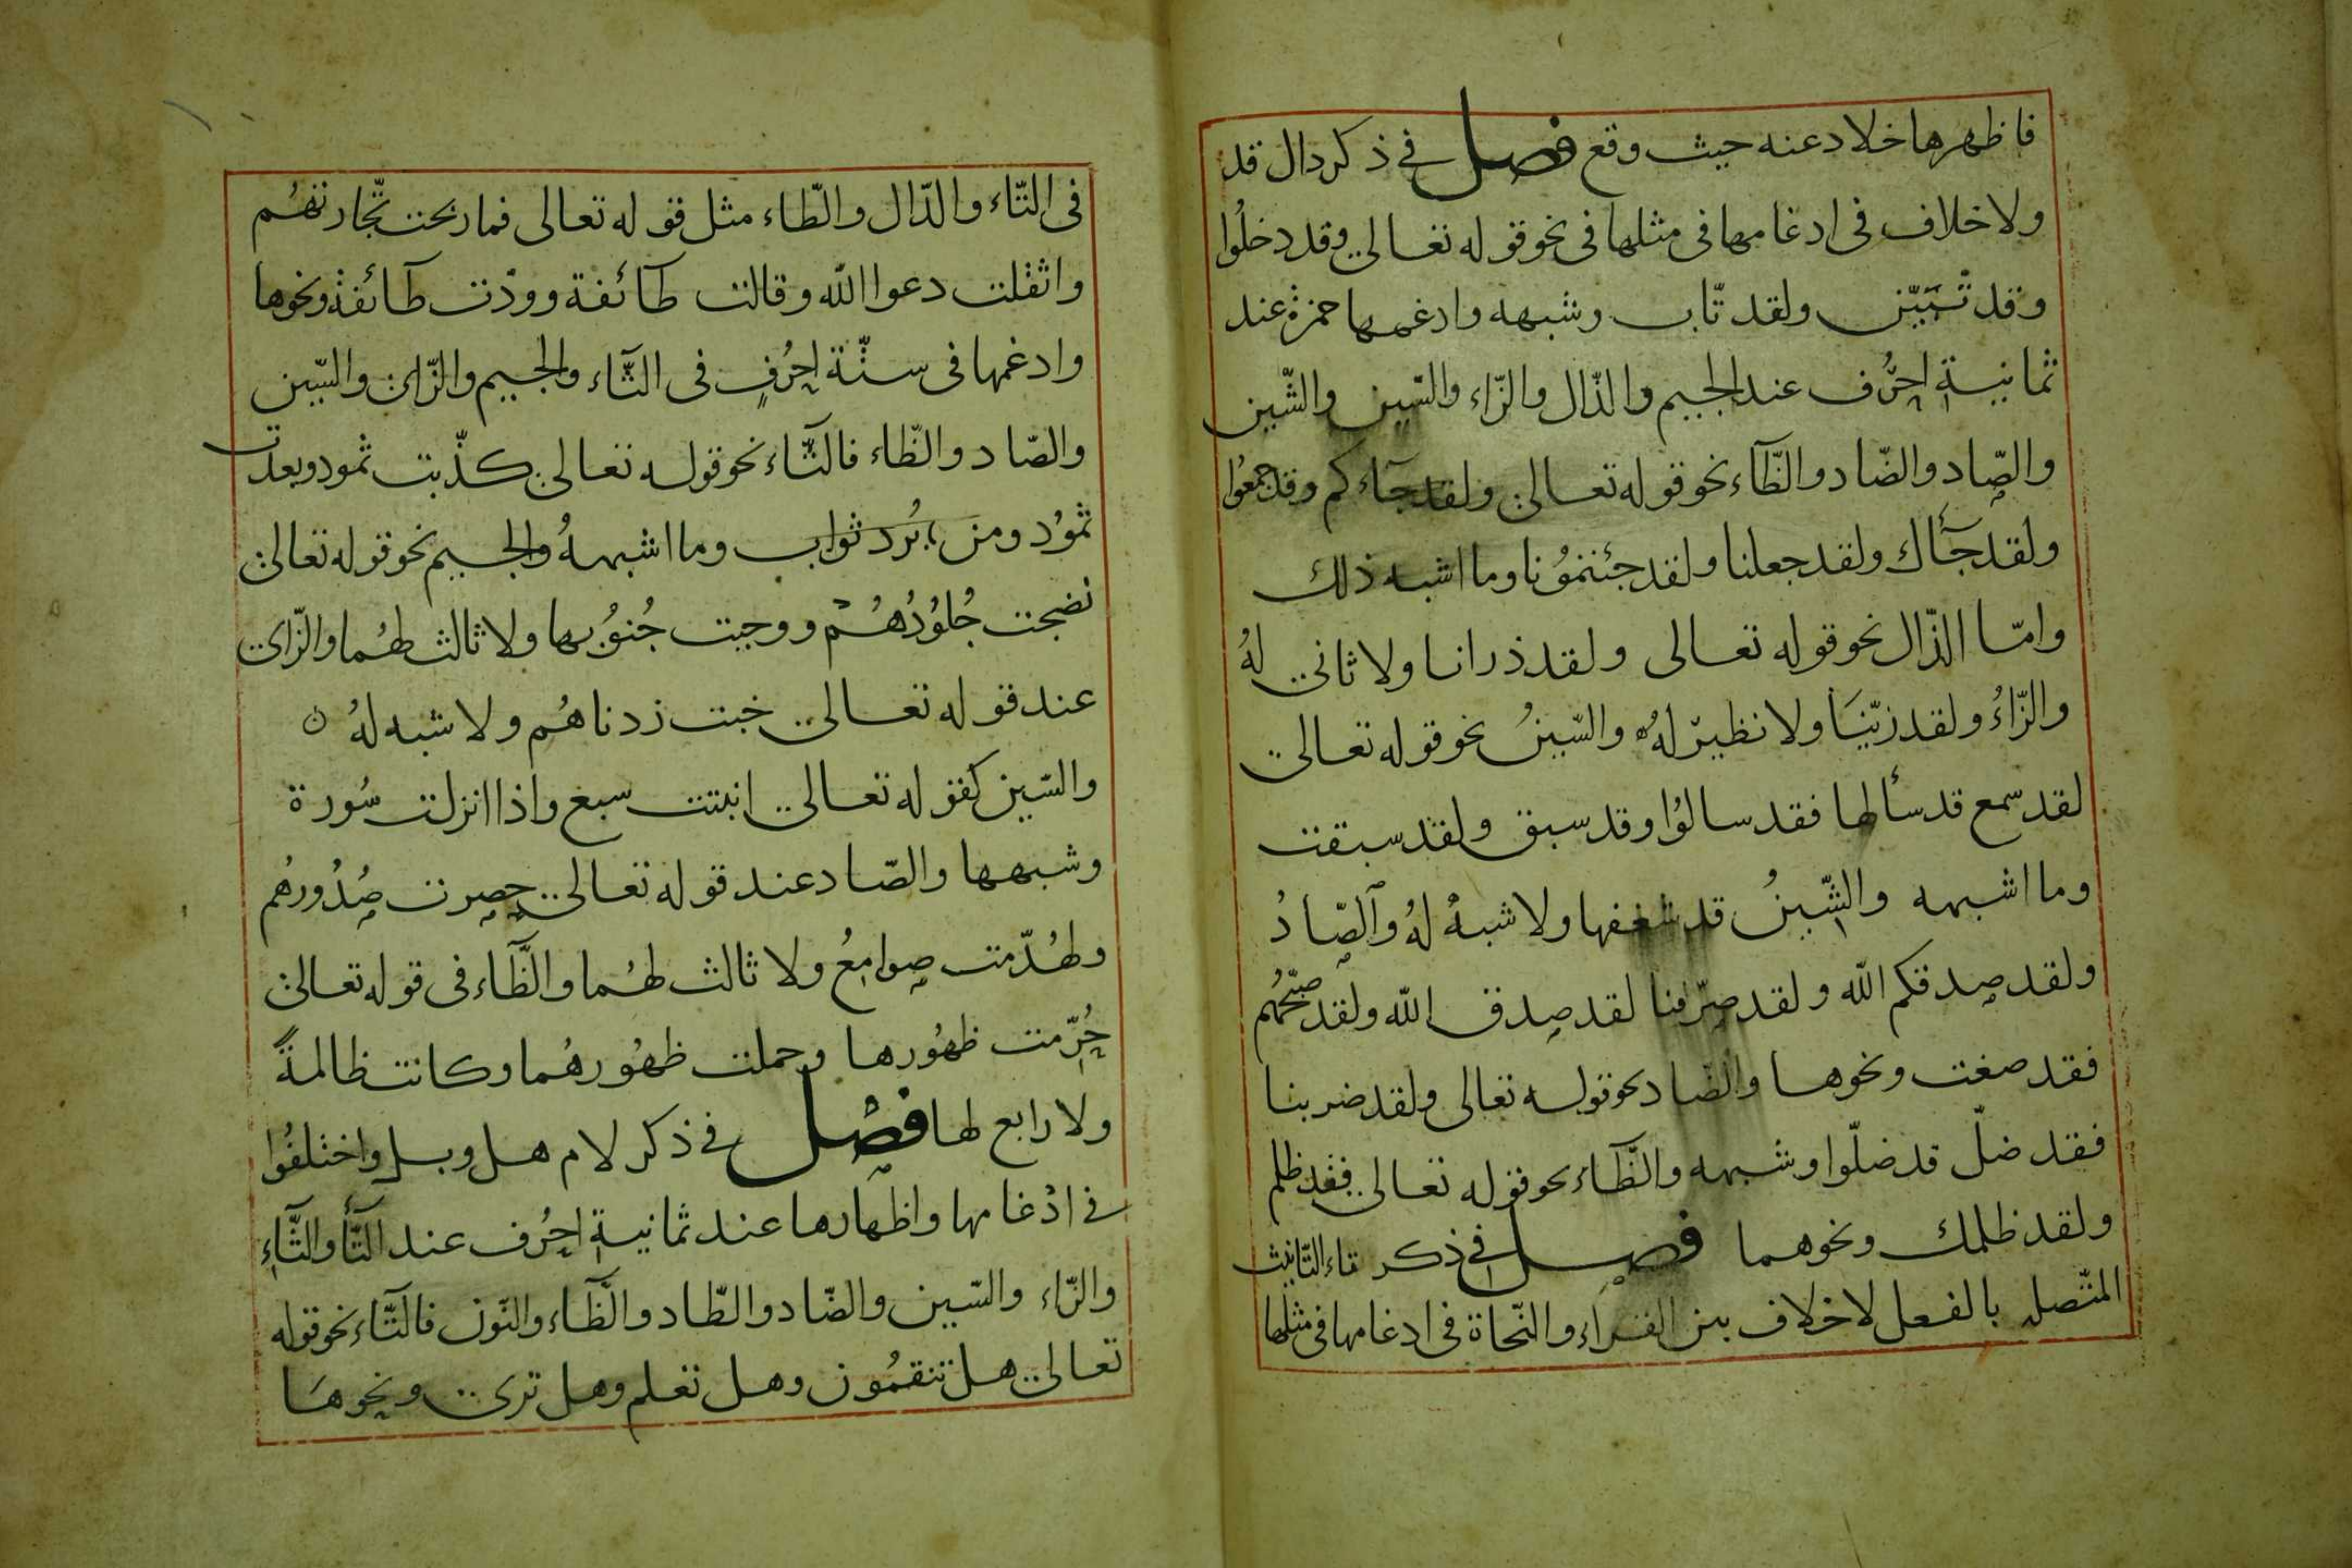 فاظهرها خلاد عنه حيث وقع فصل في ذكر دال قد
ولا خلاف فى ادغامها فى مثلها فى نحو قوله تعالى وقد دخلُوا
وقد تَبيّن ولقد تّاب وشبهه وادغمها حمزة عند
ثمانية احرُف عند الجيم والذّال والزّاء والسّين والشّين
والصّاد والضّاد والظّآء نحو قوله تعالى ولقد جآءكم وقد جمعُوا
ولقد جآاك ولقد جعلنا ولقد جئتمُونا وما اشبه ذلك
وامّا الذّال نحو قوله تعالى ولقد ذرانا ولا ثانى لهُ
والزّاءُ ولقد زيّنَا ولا نظير لهُ والسّينُ نحو قوله تعالى
لقد سمع قد سألها فقد سالوُا وقد سبق ولقد سبقت
وما اشبهه والشّينُ قد شغفها ولا شبهُ لهُ والصّادُ
ولقد صدقكم الله ولقد صرّفنا لقد صدق الله ولقد صبّحهُم
فقد صغت ونحوها والضّاد نحو قوله تعالى ولقد ضربنا
فقد ضلّ قد ضلّوا وشبهه والظّآء نحو قوله تعالى فقد ظلم
ولقد ظلمك ونحوهما فصل في ذكر تاء التّانيث
المتّصل بالفعل لا خلاف بين القراء والنّحاة فى ادغامها فى مثلها
فى التّاء والدّال والطّاء مثل قوله تعالى فما ربحت تّجارتهُم
واثقلت دعوا الله وقالت طائفة وودّت طائفة ونحوها
وادغمها فى ستّة احرُفٍ فى الثّآء والجيم والزّاى والسّين
والصّاد والظّاء فالثّآء نحو قوله تعالى كذّبت ثمود وبعدت
ثموُد ومن يُرد ثواب وما اشبههُ والجيم نحو قوله تعالى
نضجت جُلوُدُهُم ووجبت جُنوُبها ولا ثالث لهُما والزّاى
عند قوله تعالى خبت زدناهُم ولا شبه لهُ ن
والسّين كقوله تعالى انبتت سبع واذا انزلت سُورة
وشبهها والصّاد عند قوله تعالى حصرت صُدُورهُم
ولهُدّمت صوامعُ ولا ثالث لهُما والظّآء فى قوله تعالى
حُرّمت ظهُورها وحملت ظهُورهُما وكانت ظالمةً
ولا رابع لها فصل في ذكر لام هل وبل واختلفُوا
في ادْغامها واظهارها عند ثمانية احرُف عند التّآ والثّآءِ
والزّاء والسّين والضّاد والطّاد والظّآء والنّون فالتّآء نحو قوله
تعالى هل تنقمُون وهل تعلم وهل ترى ونحوهَا